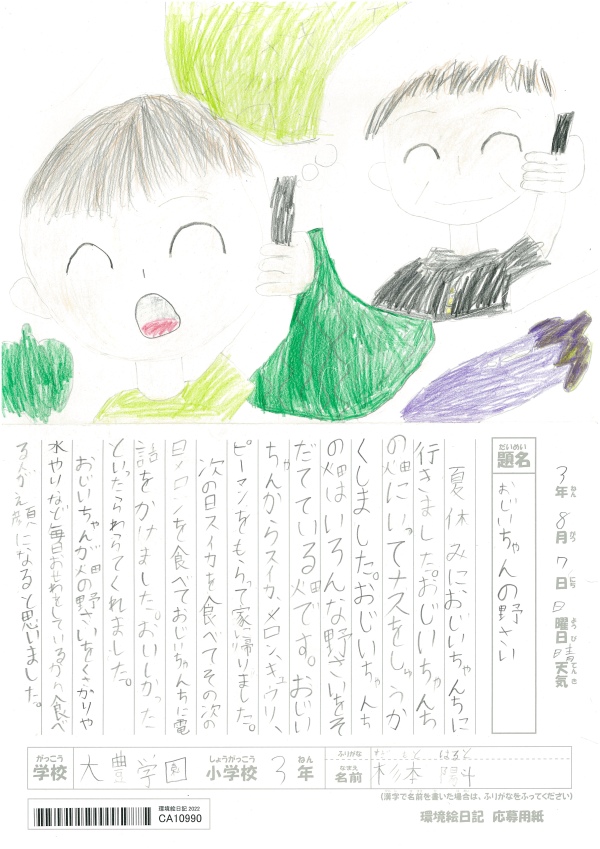 3年8月7日日曜日晴天気
ねん がつ にち ようび てんき
だいめい
題名 おじいちゃんの野さい
夏休みにおじいちゃんちに
行きました。おじいちゃんち
の畑にいってナスをしゅうか
くしました。おじいちゃんち
の畑はいろんな野さいをそ
だてている畑です。おじい
ちゃんからスイカ、メロン、キュウリ、
ピーマンをもらって家に帰りました。
次の日スイカを食べてその次の
日メロンを食べておじいちゃんに電
話をかけました。おいしかった
といったらわらってくれました。
おじいちゃんが畑の野さいをくさかりや
水やりなど毎日おせわをしているから食べ
る人が え顔になると思いました。
がっこう
学校 大豊学園
しょうがっこう
小学校 3年
ねん
ふりがな はると
なまえ
名前 杉本陽斗
(漢字で名前を書いた場合は、ふりがなをふってください)
環境絵日記 2022
CA10990
環境絵日記 応募用紙